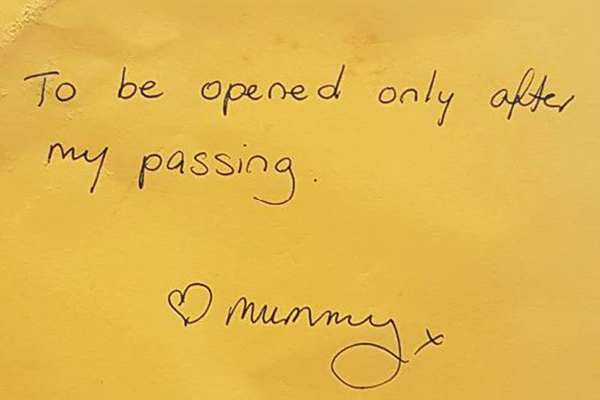 To be opened only after
my passing.
♡ mummy x